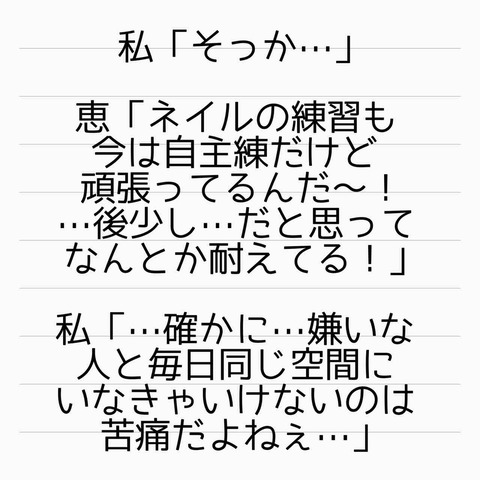 私「そっか…」
恵「ネイルの練習も
今は自主練だけど
頑張ってるんだ〜！
…後少し…だと思って
なんとか耐えてる！」
私「…確かに…嫌いな
人と毎日同じ空間に
いなきゃいけないのは
苦痛だよねぇ…」